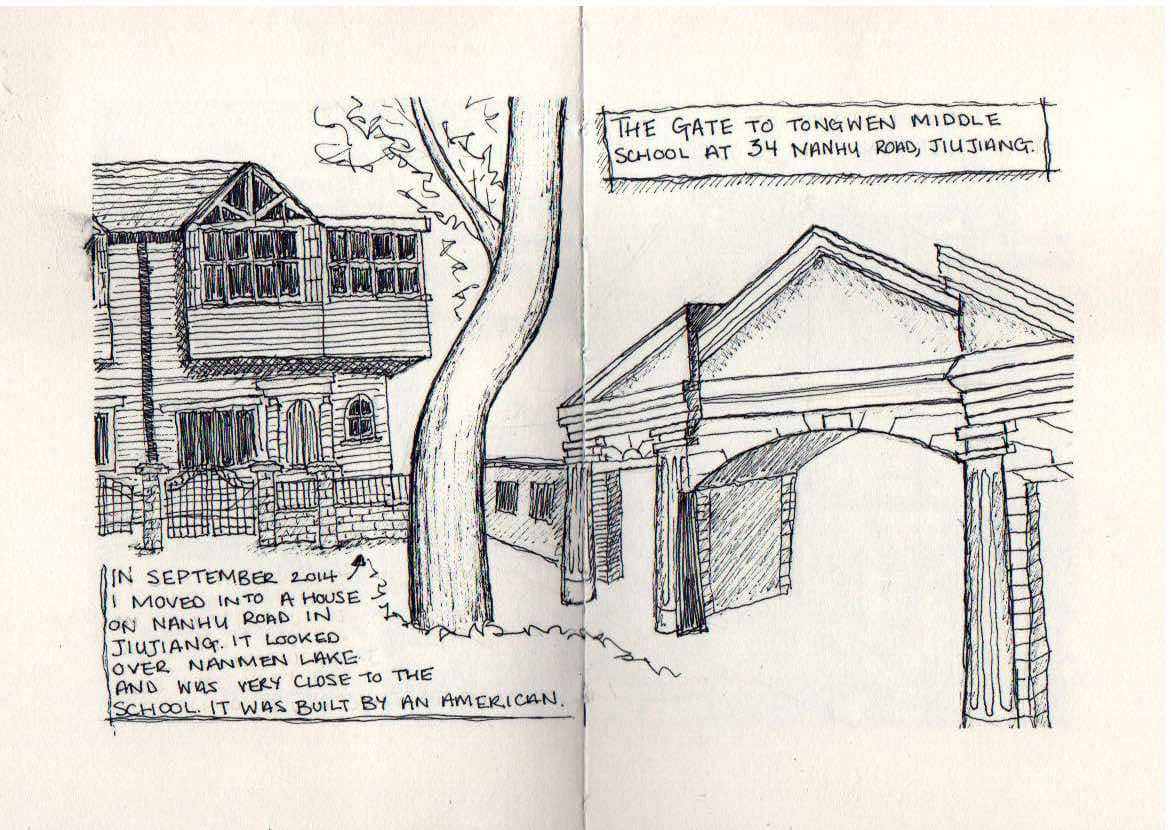 IN SEPTEMBER 2014
I MOVED INTO A HOUSE
ON NANHU ROAD IN
JIUJIANG. IT LOOKED
OVER NANMEN LAKE
AND WAS VERY CLOSE TO THE
SCHOOL. IT WAS BUILT BY AN AMERICAN.
THE GATE TO TONGWEN MIDDLE
SCHOOL AT 34 NANHU ROAD, JIUJIANG.